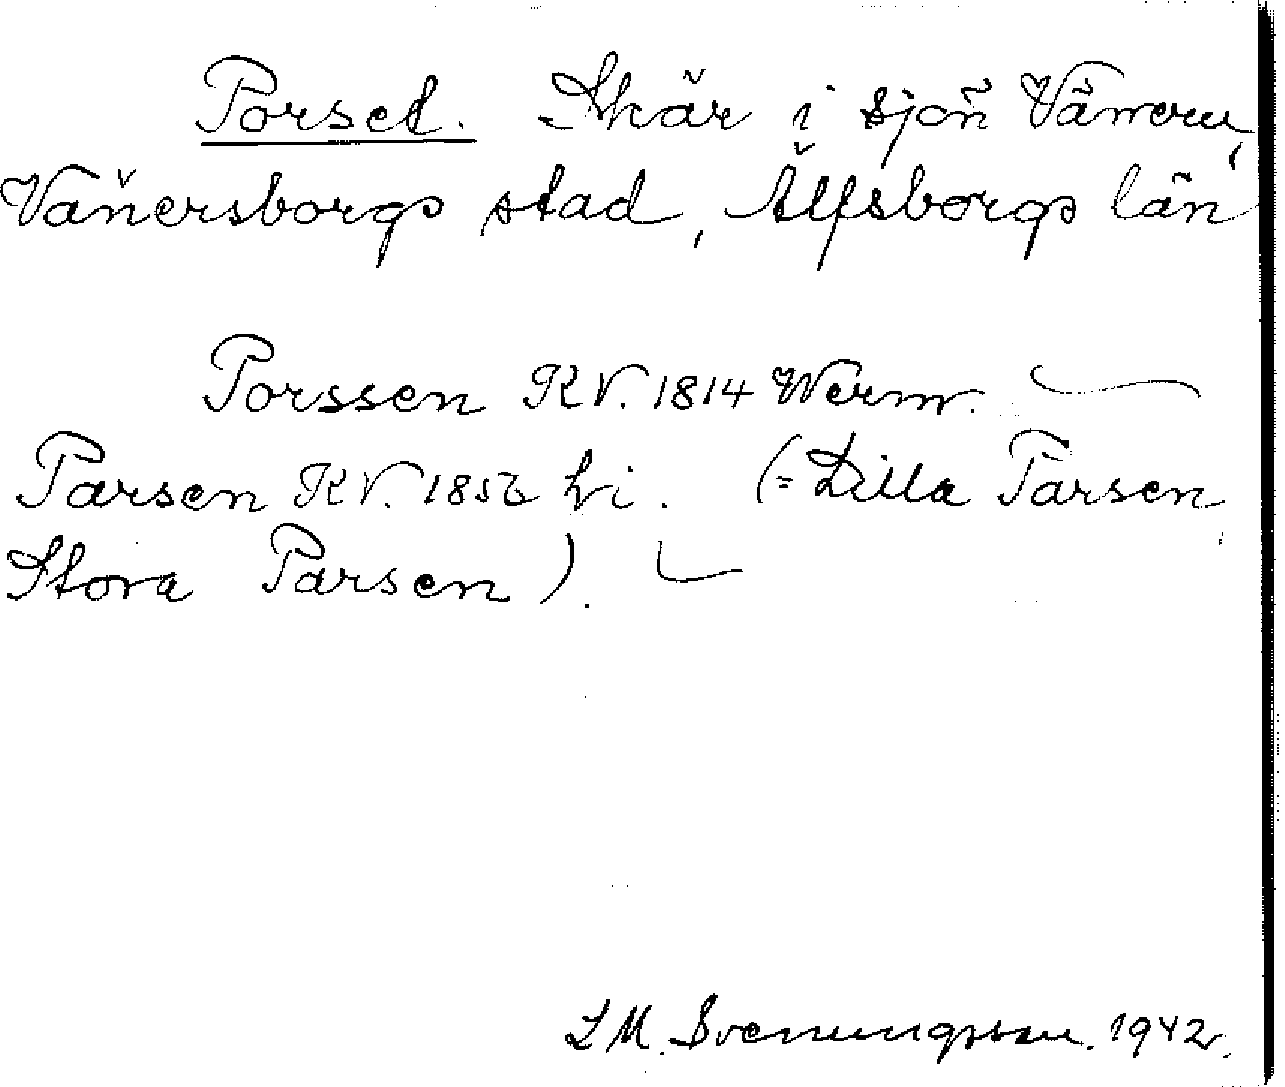 Porset. Skär i sjön Vänern,
Vänersborgs stad, Älfsborgs län
Porssen KV. 1814 Werm.
Parsen KV. 1856 hi. (= Lilla Parsen,
Stora Parsen).
L M. Svenungsson. 1942.